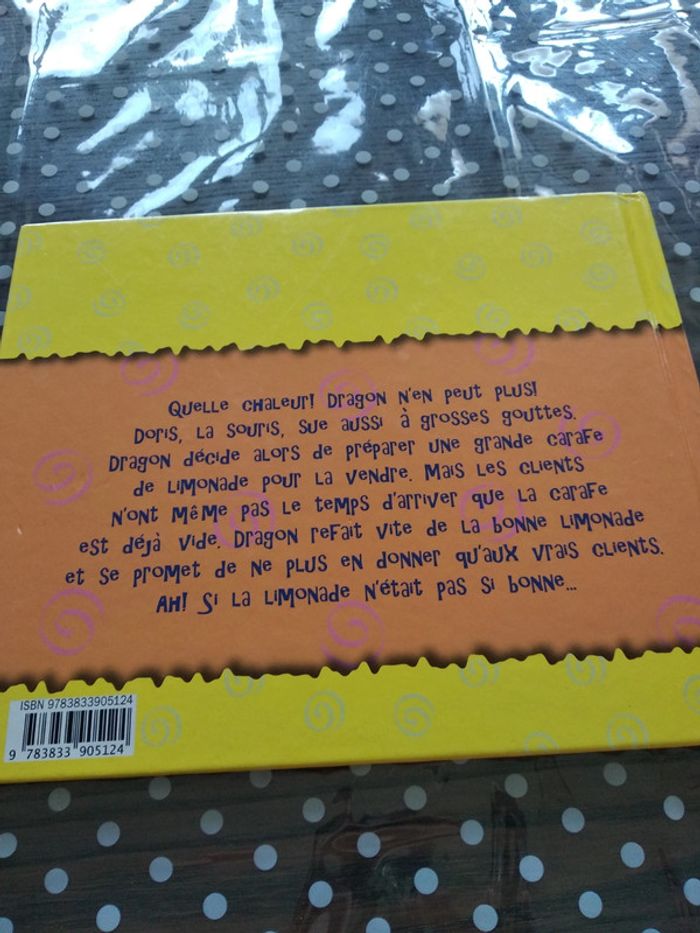 Quelle chaleur! Dragon n'en peut plus!
Doris, la souris, sue aussi à grosses gouttes.
Dragon décide alors de préparer une grande carafe
de limonade pour la vendre. Mais les clients
n'ont même pas le temps d'arriver que la carafe
est déjà vide. Dragon refait vite de la bonne limonade
et se promet de ne plus en donner qu'aux vrais clients.
Ah! Si la limonade n'était pas si bonne...
ISBN 9783833905124
9 783833 905124